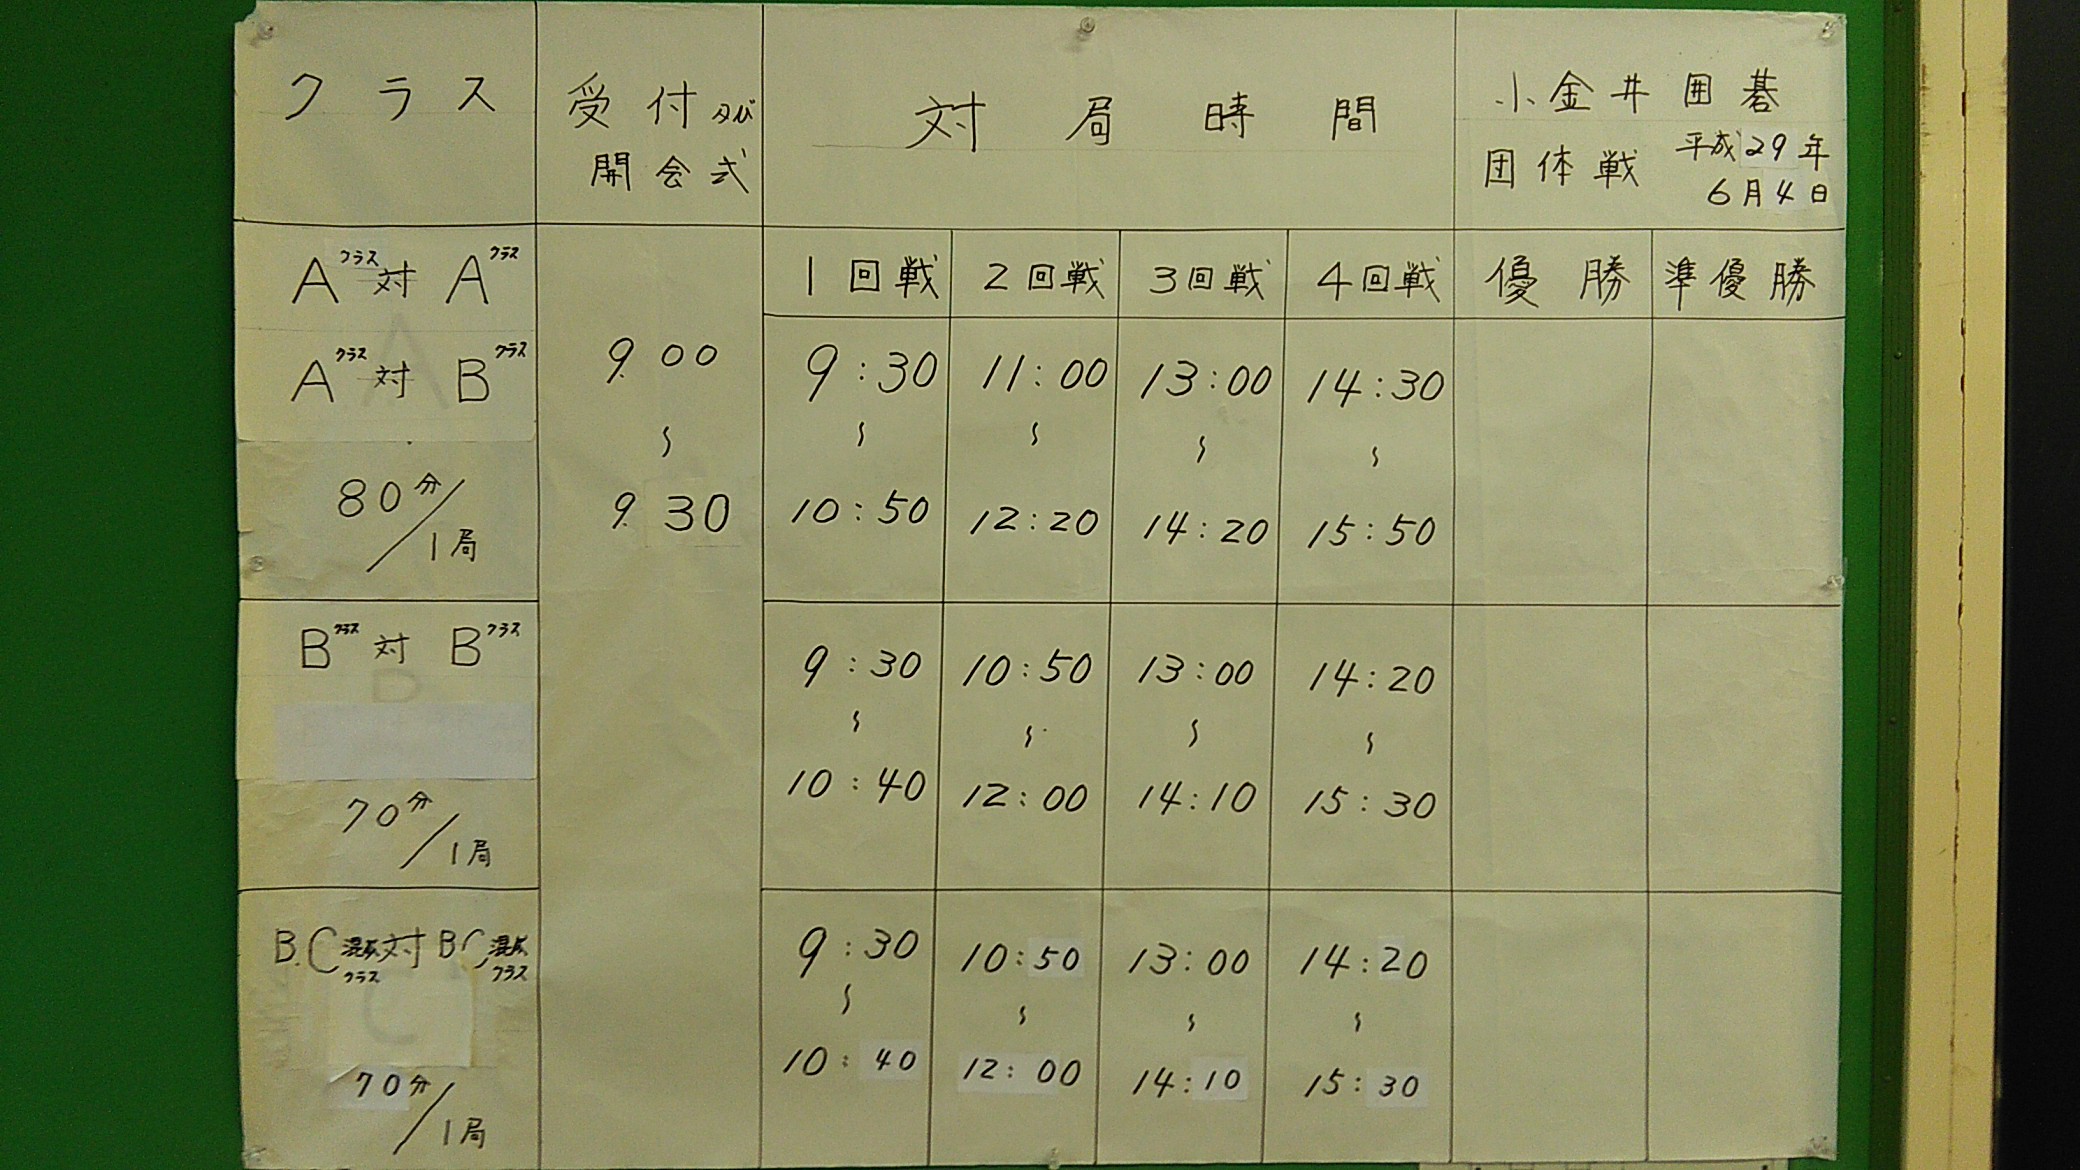 クラス
受付及び
開会式
対局時間
小金井囲碁
団体戦 平成29年
6月4日
Aクラス対Aクラス
Aクラス対Bクラス
80分/1局
9.00
~
9.30
1回戦 2回戦 3回戦 4回戦 優勝 準優勝
9:30 11:00 13:00 14:30
~ ~ ~ ~
10:50 12:20 14:20 15:50
Bクラス対Bクラス
70分/1局
9:30 10:50 13:00 14:20
~ ~ ~ ~
10:40 12:00 14:10 15:30
B.C混成クラス対B.C混成クラス
70分/1局
9:30 10:50 13:00 14:20
~ ~ ~ ~
10:40 12:00 14:10 15:30